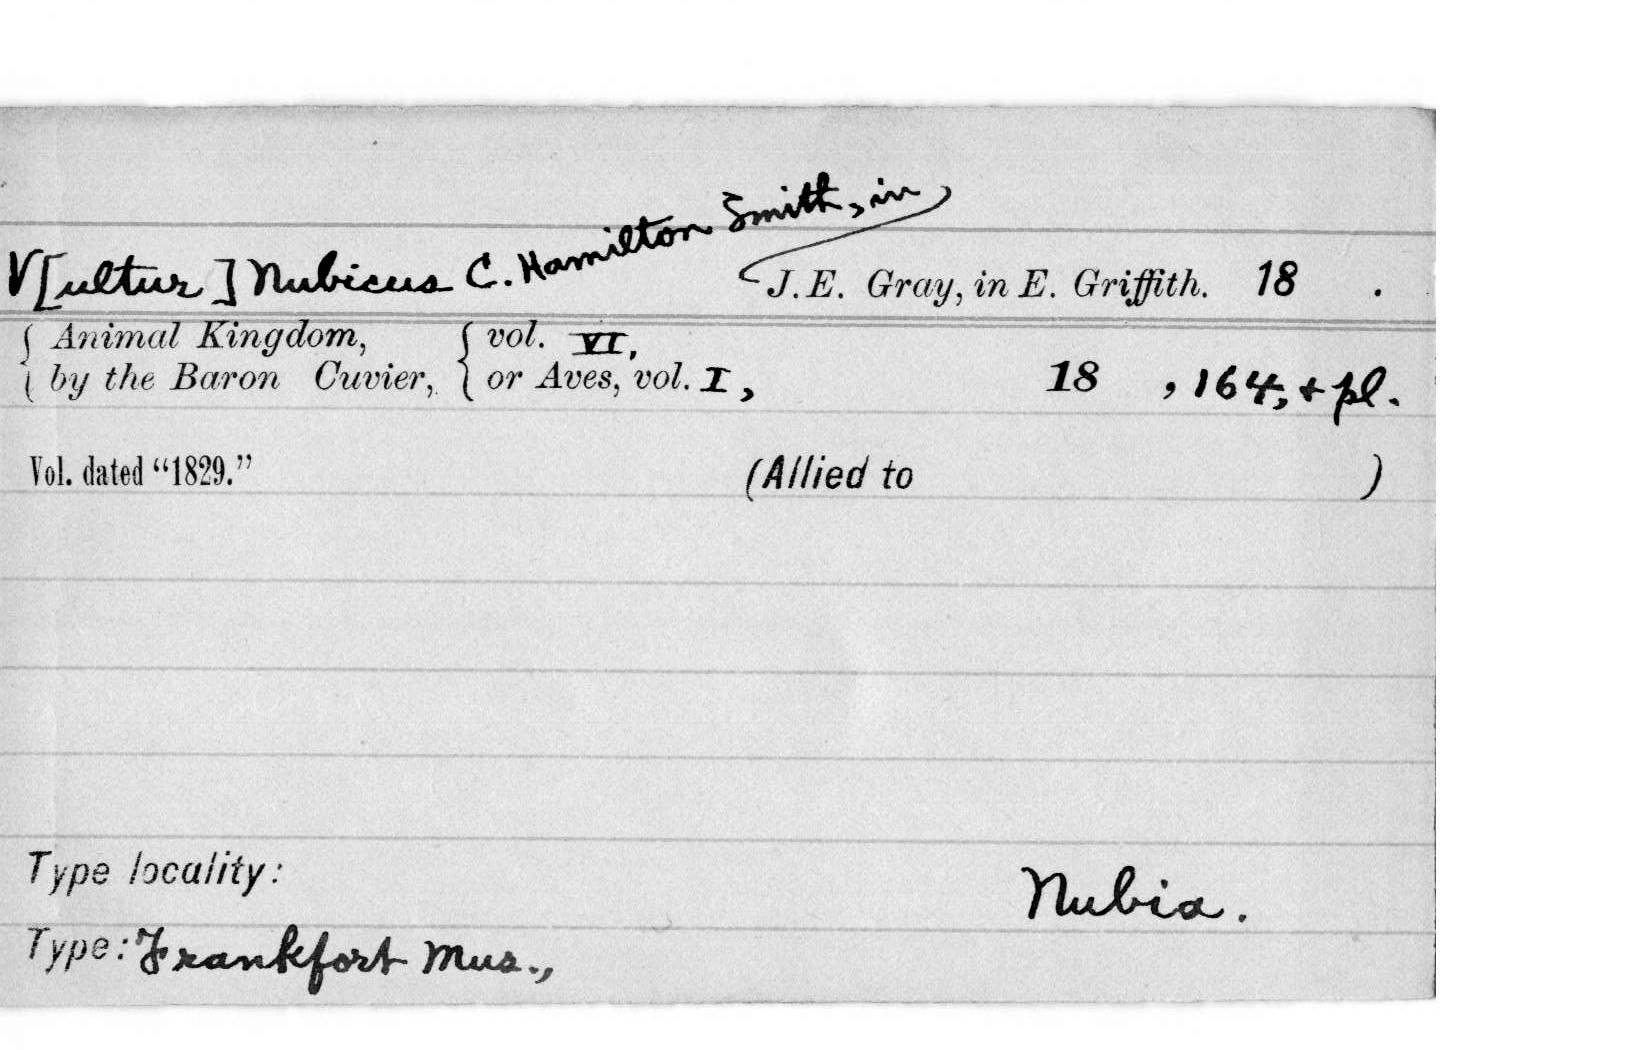 V[ultur] Nubicus C. Hamilton Smith, in J.E. Gray, in E. Griffith. 18 .
{ Animal Kingdom, { vol. VI,
{ by the Baron Cuvier, { or Aves, vol. I, 18 , 164, + pl.
Vol. dated “1829.” (Allied to )
Type locality: Nubia.
Type: Frankfort Mus.,